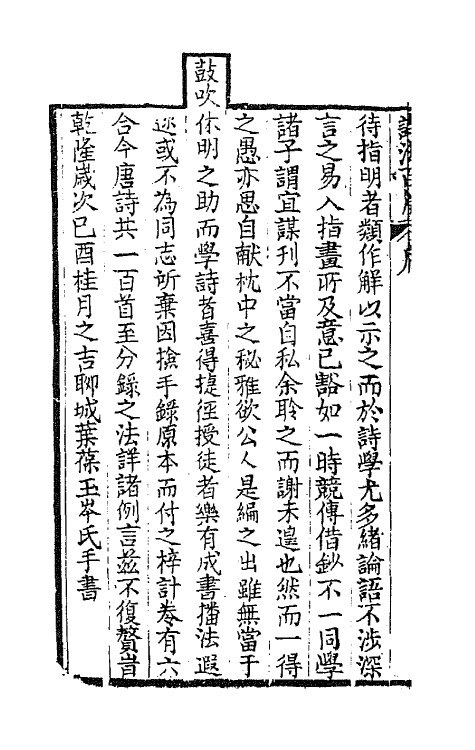 待指明者類作解以示之而於詩學尤多緒論語不涉深
言之易入指畫所及意已豁如一時競傳借鈔不一同學
諸子謂宜謀刊不當自私余聆之而謝未遑也然而一得
之愚亦思自献枕中之秘雅欲公人是編之出雖無當于
鼓吹休明之助而學詩者喜得捷徑授徒者樂有成書播法遐
迩或不為同志所棄因撿手錄原本而付之梓計卷有六
合今唐詩共一百首至分錄之法詳諸例言茲不復贅旹
乾隆歲次己酉桂月之吉聊城葉葆玉岑氏手書